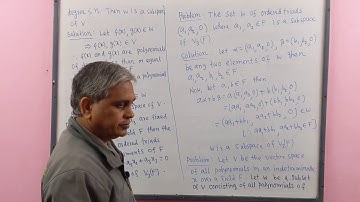 degree ≤ n. Then W is a subspace
of V
Solution: Let f(x), g(x) ∈ W
⇒ f(x), g(x) ∈ V
∴ f(x) and g(x) are polynomials
than or equal
polynomial
of V.
are fixed
field F then the
ordered triads
elements of F
a₃x₃ = 0
of V₃(F)
Problem: The set W of ordered triads
(a₁, a₂, 0) where a₁, a₂ ∈ F is a subspace
of V₃(F)
Solution: Let α = (a₁, a₂, 0), β = (b₁, b₂, 0)
be any two elements of W then
a₁, a₂, b₁, b₂ ∈ F
Now, let a, b ∈ F then
aα + bβ = a(a₁, a₂, 0) + b(b₁, b₂, 0)
= (aa₁, aa₂, 0) + (bb₁, bb₂, 0)
= (aa₁ + bb₁, aa₂ + bb₂, 0) ∈ W
[∴ aa₁ + bb₁, aa₂ + bb₂ ∈ F]
W is a subspace of V₃(F)
Problem: Let V be the vector space
of all polynomials in an indeterminate
x over a field F. Let W be a subset
of V consisting of all polynomials of